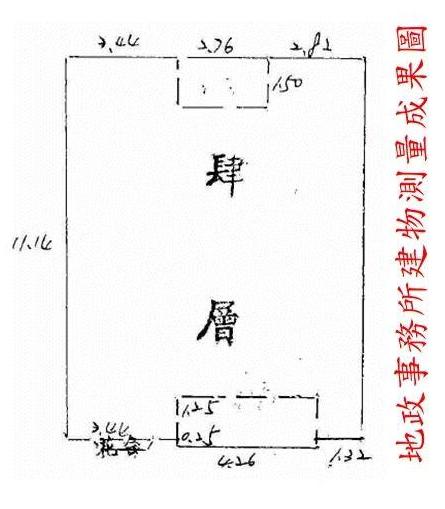 3.44 2.76 2.82
1.50
肆
11.14
層
1.25
3.44
0.25
4.26
1.32
地政事務所建物測量成果圖